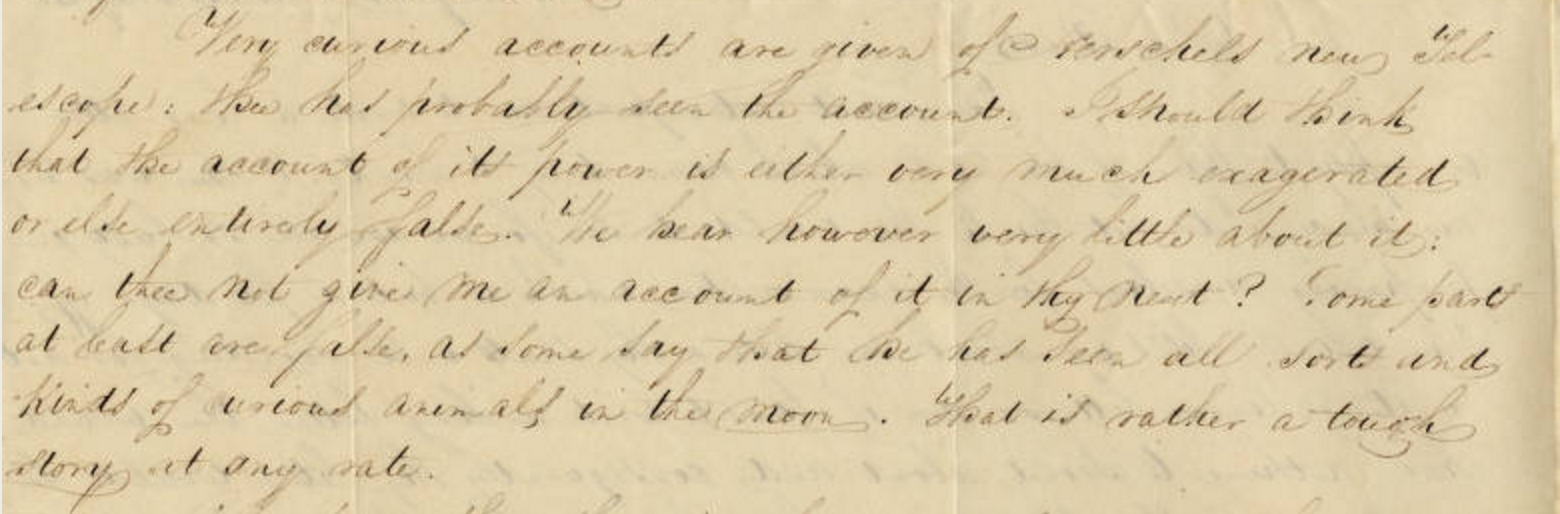 Very curious accounts are given of Herschels new Tel-
escope: thee has probably seen the account. I should think
that the account of its power is either very much exagerated
or else entirely false. We hear however very little about it:
can thee not give me an account of it in thy next? Some parts
at least are false, as some say that he has seen all sorts and
kinds of curious animals in the moon. That is rather a tough
story at any rate.